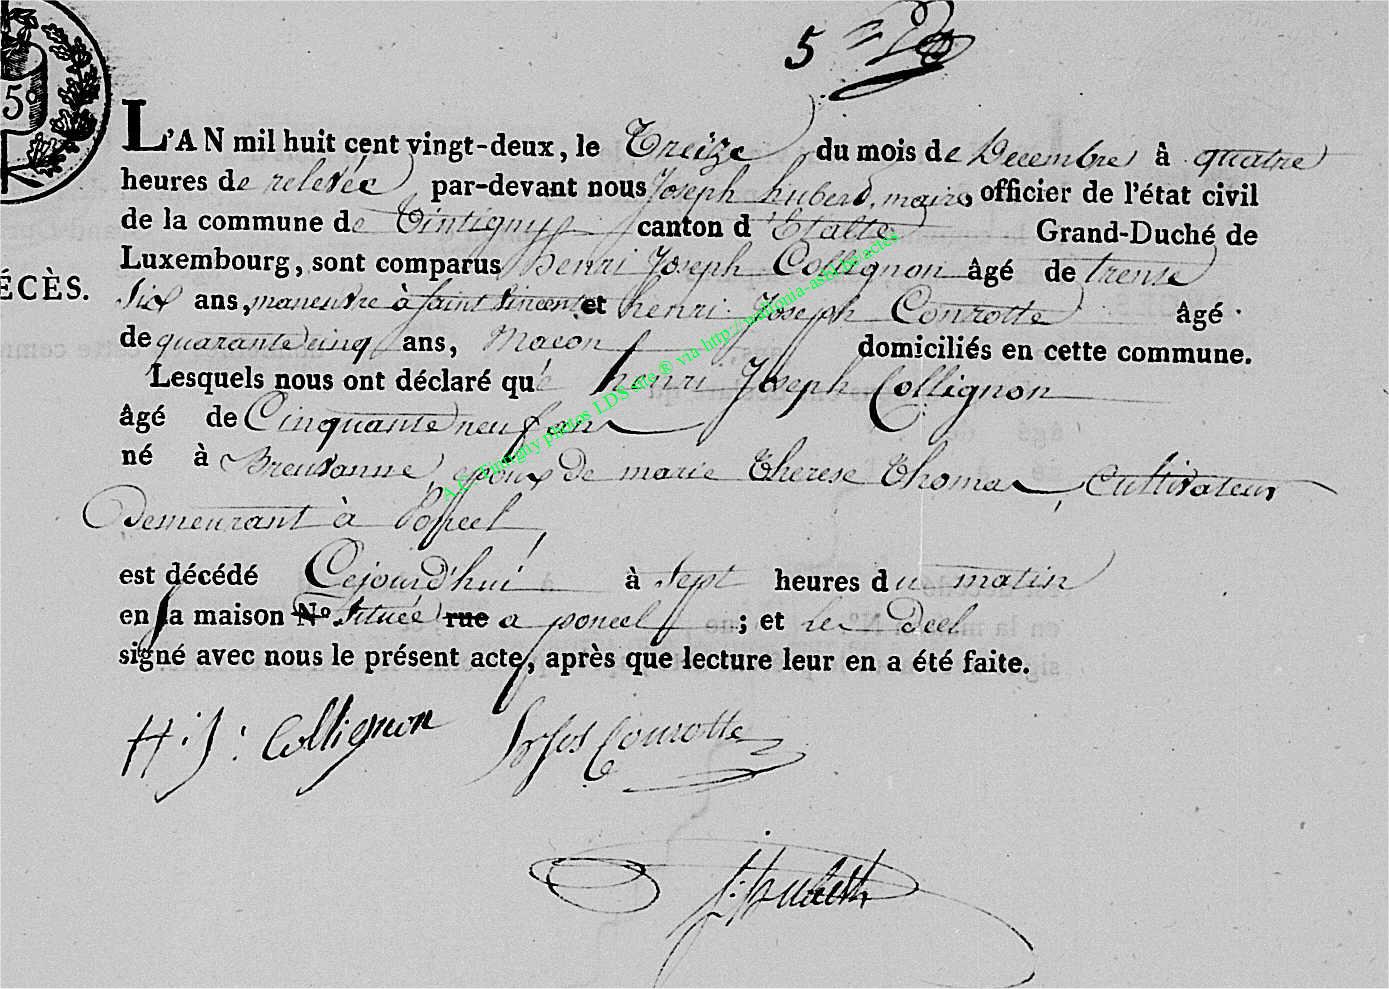 5
50
L'AN mil huit cent vingt-deux, le Treize du mois de Decembre à quatre
heures de relevée par-devant nous Joseph huberd, maire officier de l'état civil
de la commune de Tintigny canton d'Etalle Grand-Duché de
Luxembourg, sont comparus henri Joseph Collignon âgé de trense
ÉCÈS.
six ans, maneuvre à saint vincent et henri Joseph Conrotte âgé
de quarante cinq ans, Macon domiciliés en cette commune.
Lesquels nous ont déclaré que henri Joseph Collignon
âgé de Cinquante neuf ans
né à Breuvanne, epoux de marie Therese Thomas, Cultivateur
Demeurant à Poncel,
est décédé Cejourd'hui à sept heures du matin
en la maison N.º située rue a poncel ; et les Decl
signé avec nous le présent acte, après que lecture leur en a été faite.
H:J: Collignon Conrotte
A.C. Tintigny photos LDS site ® via http://wallonia-asbl.be/actes